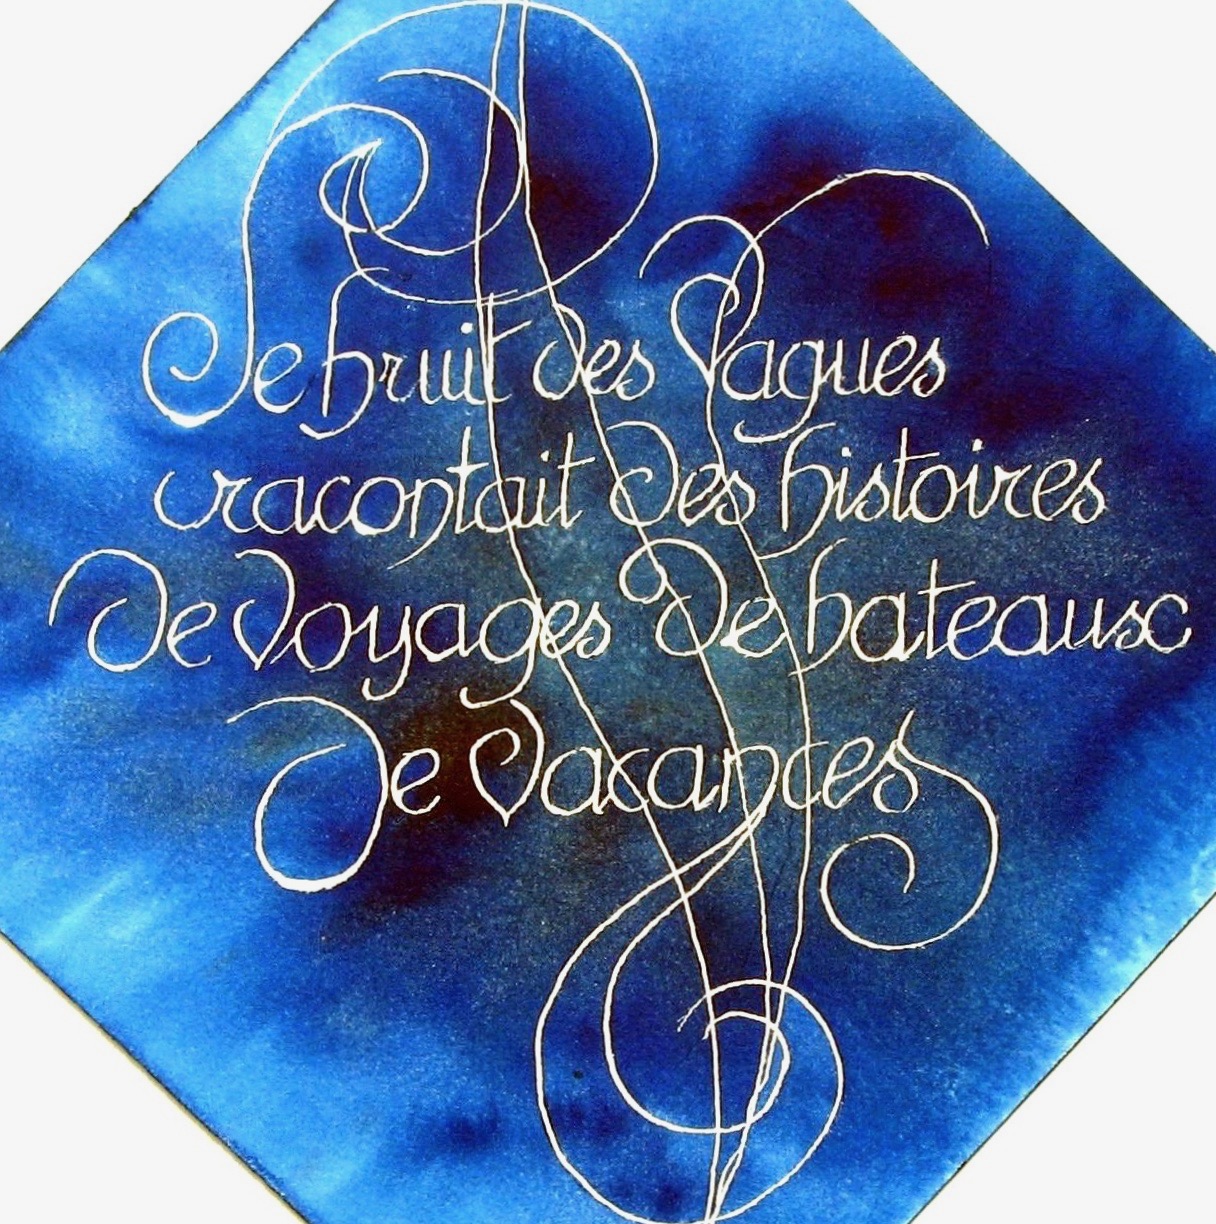 Le bruit des Vagues
racontait des histoires
De Voyages De bateaux
De Vacances